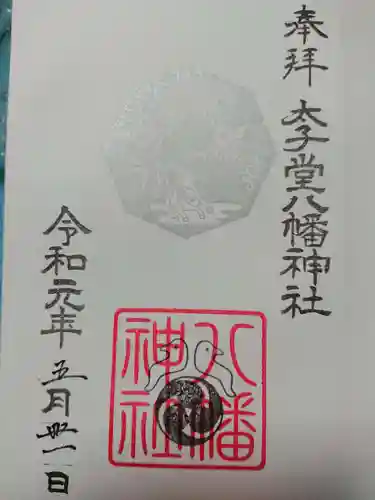 奉拝 太子堂八幡神社
八幡
神社
令和元年 五月卅一日